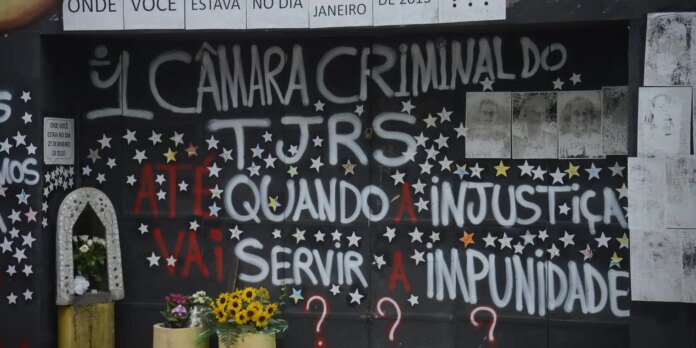 ONDE VOCÊ ESTAVA NO DIA JANEIRO DE 2013 ???
1ª CÂMARA CRIMINAL DO
TJRS
ATÉ QUANDO A INJUSTIÇA
VAI SERVIR A IMPUNIDADE
? ? ?
ONDE VOCÊ
ESTAVA NO DIA
27 DE JANEIRO
DE 2013?